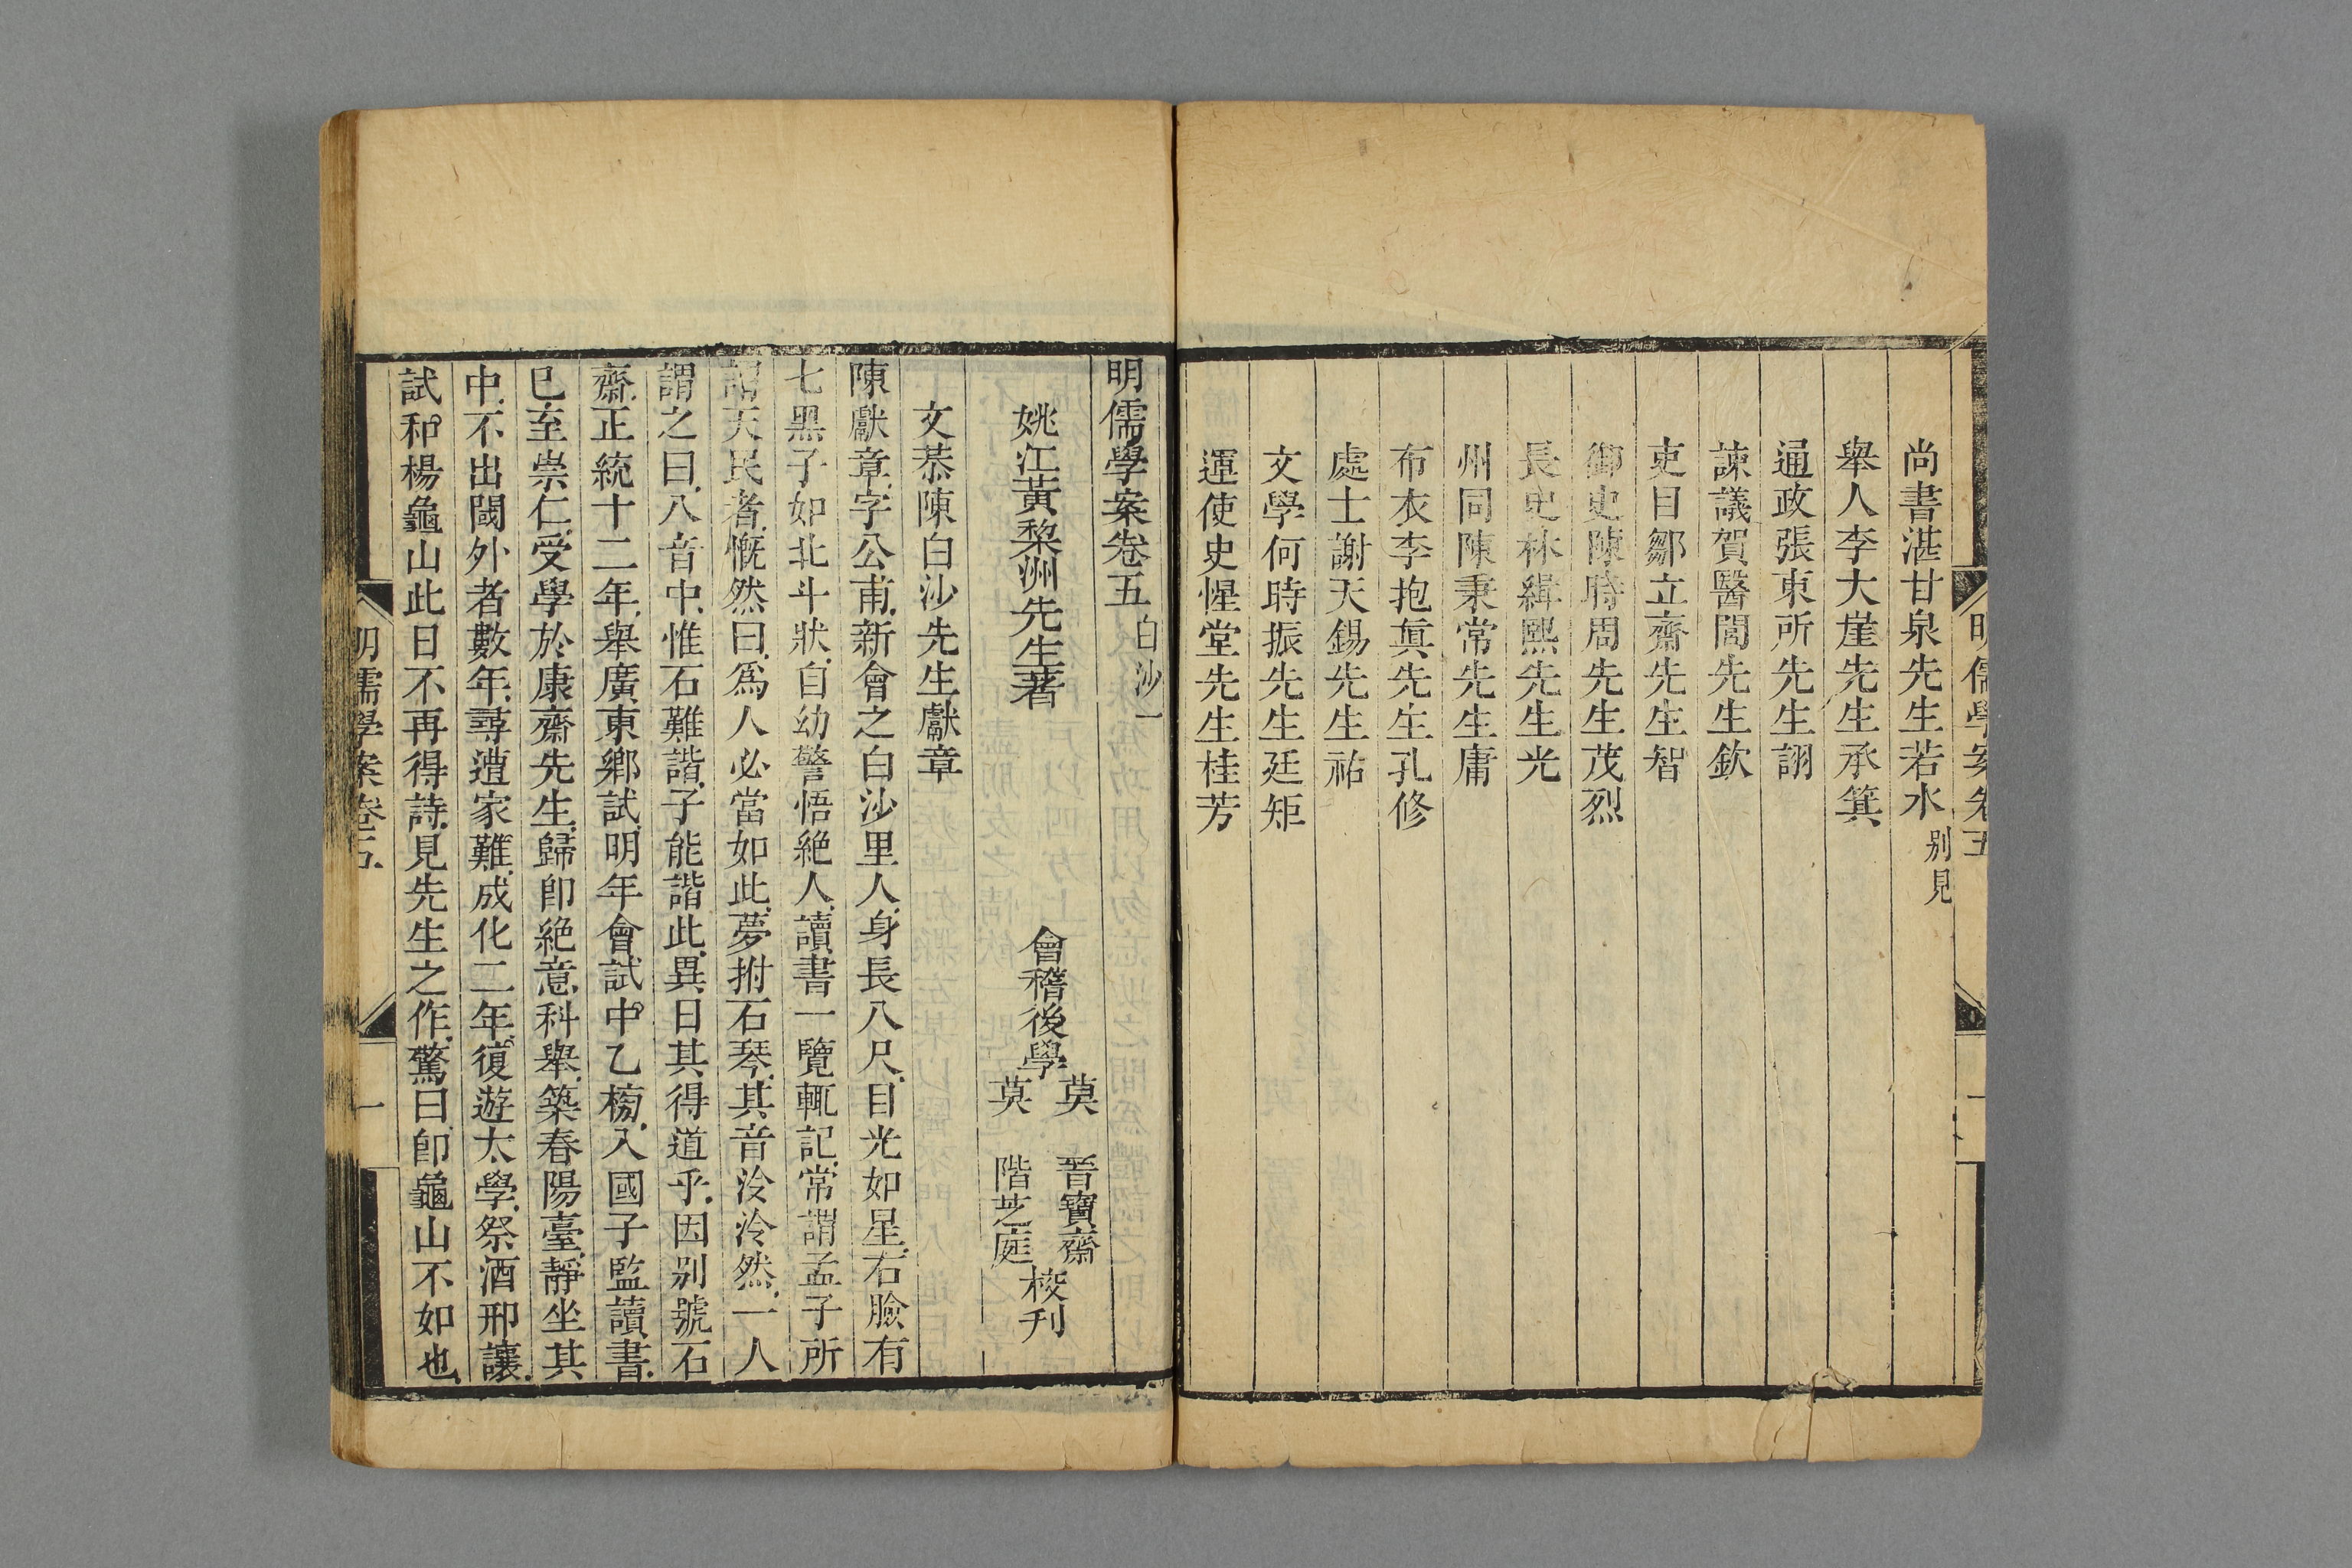 明儒學案卷五
尚書湛甘泉先生若水 别見
舉人李大崖先生承箕
通政張東所先生詡
諫議賀醫閭先生欽
吏目鄒立齋先生智
御史陳時周先生茂烈
長史林緝熙先生光
州同陳秉常先生庸
布衣李抱眞先生孔修
處士謝天錫先生祐
文學何時振先生廷矩
運使史惺堂先生桂芳
明儒學案卷五 白沙一
姚江黃黎洲先生著
會稽後學 莫晉寶齋 莫階芝庭 校刋
文恭陳白沙先生獻章
陳獻章字公甫新會之白沙里人身長八尺目光如星右臉有
七黑子如北斗狀自幼警悟絶人讀書一覽輒記常謂孟子所
謂天民者慨然曰爲人必當如此夢拊石琴其音泠泠然一人
謂之曰八音中惟石難諧子能諧此異日其得道乎因别號石
齋正統十二年舉廣東鄉試明年會試中乙榜入國子監讀書
已至崇仁受學於康齋先生歸卽絶意科舉築春陽臺靜坐其
中不出閾外者數年尋遭家難成化二年復遊太學祭酒邢讓
試和楊龜山此日不再得詩見先生之作驚曰卽龜山不如也
明儒學案卷五
一